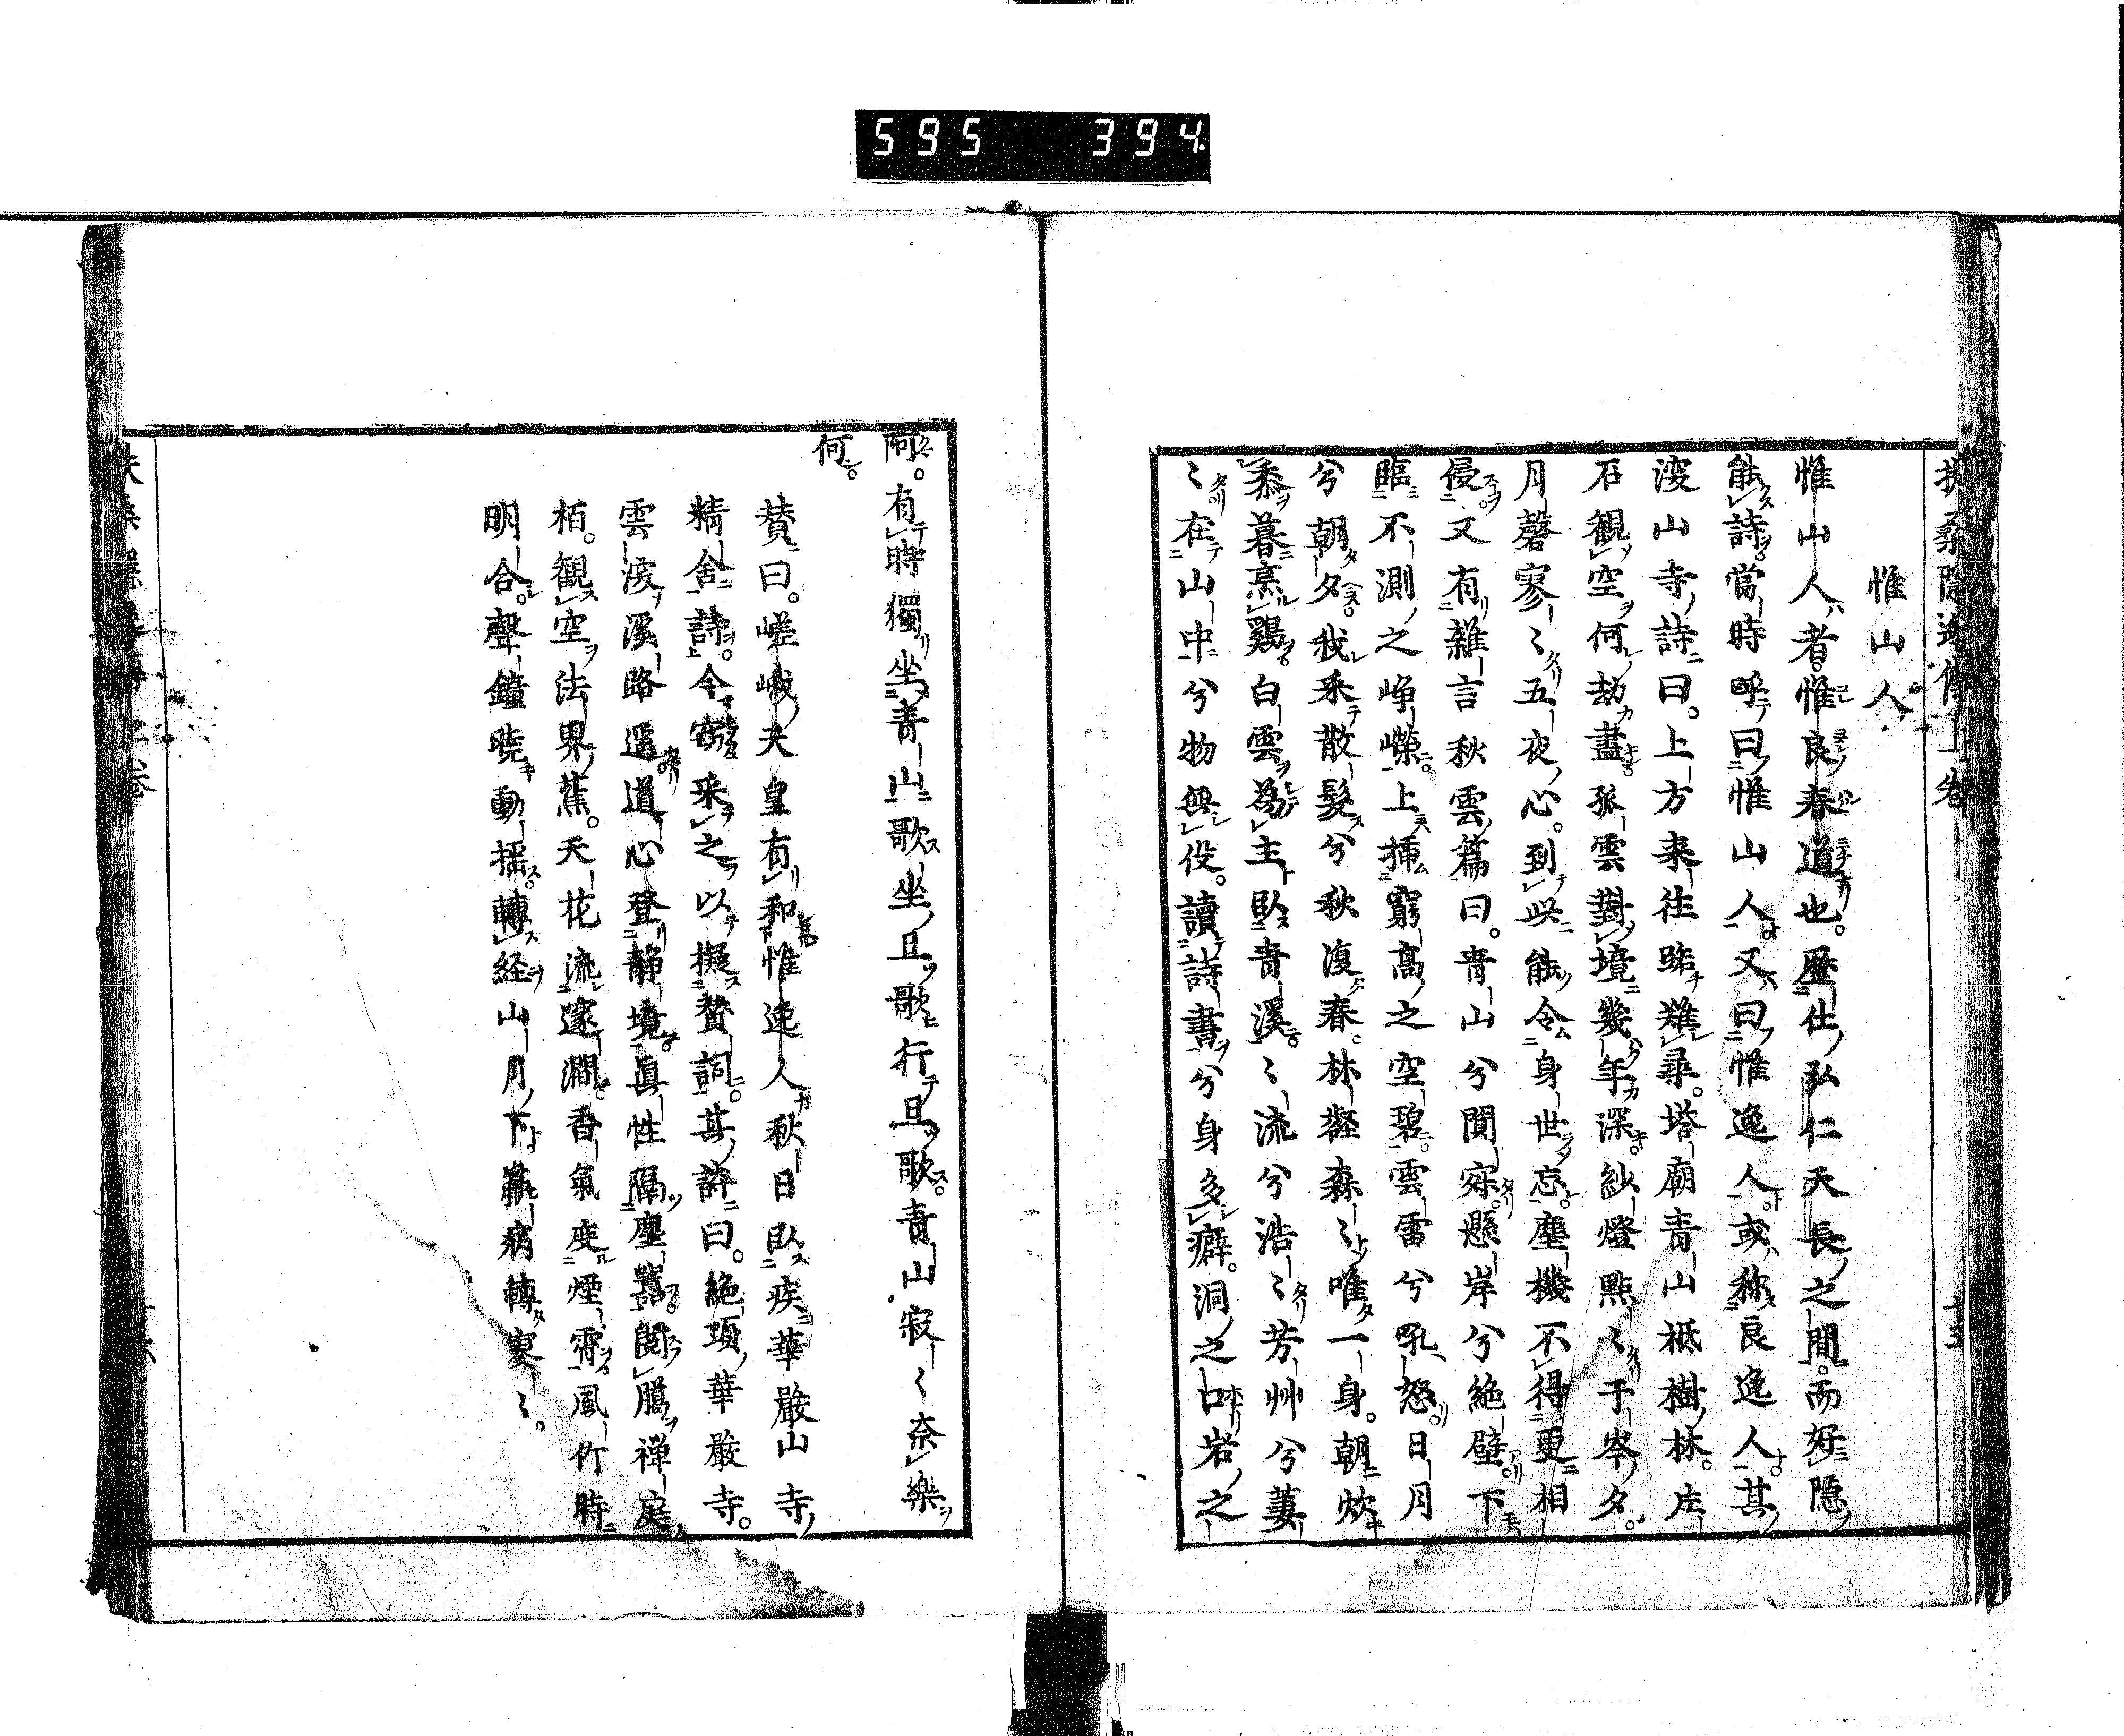 595 394
惟山人
惟山人者惟良春道也。歴仕弘仁天長之間。而好隠
能詩。當時呼曰惟山人又曰惟逸人或称良逸人其
深山寺詩曰。上方来往路難尋。塔廟青山祇樹林。片
石観空何劫盡孤雲對境幾年深。紗燈點〻千岑夕。
月磬寥〻五夜心。到此能令身世忘。塵機不得更相
侵又有雜言秋雲篇曰。青山兮閴寂。懸岸兮絶壁。下
臨不測之崢嶸。上挿窮高之空碧。雲雷兮吼怒。日月
兮朝夕。我来散髪兮秋復春。林壑森〻唯一身。朝炊
黍暮烹鶏白雲為主臥青溪。〻流兮浩〻芳艸兮萋
〻在山中兮物無役。讀詩書兮身多癖。洞之口岩之
阿。有時獨坐青山歌坐且歌行且歌。青山寂〻奈樂
何。
賛曰。嵯峨天皇有和惟逸人秋日臥疾華嚴山寺
精舎詩。今竊采之以擬賛詞。其詩曰。絶頂華嚴寺。
雲深溪路遥道心登靜境真性隔塵囂閲臘禅庭
栢。観空法界蕉。天花流邃澗香氣度煙霄風竹時
明合。聲鐘暁動揺。轉経山月下羸病轉寥〻。